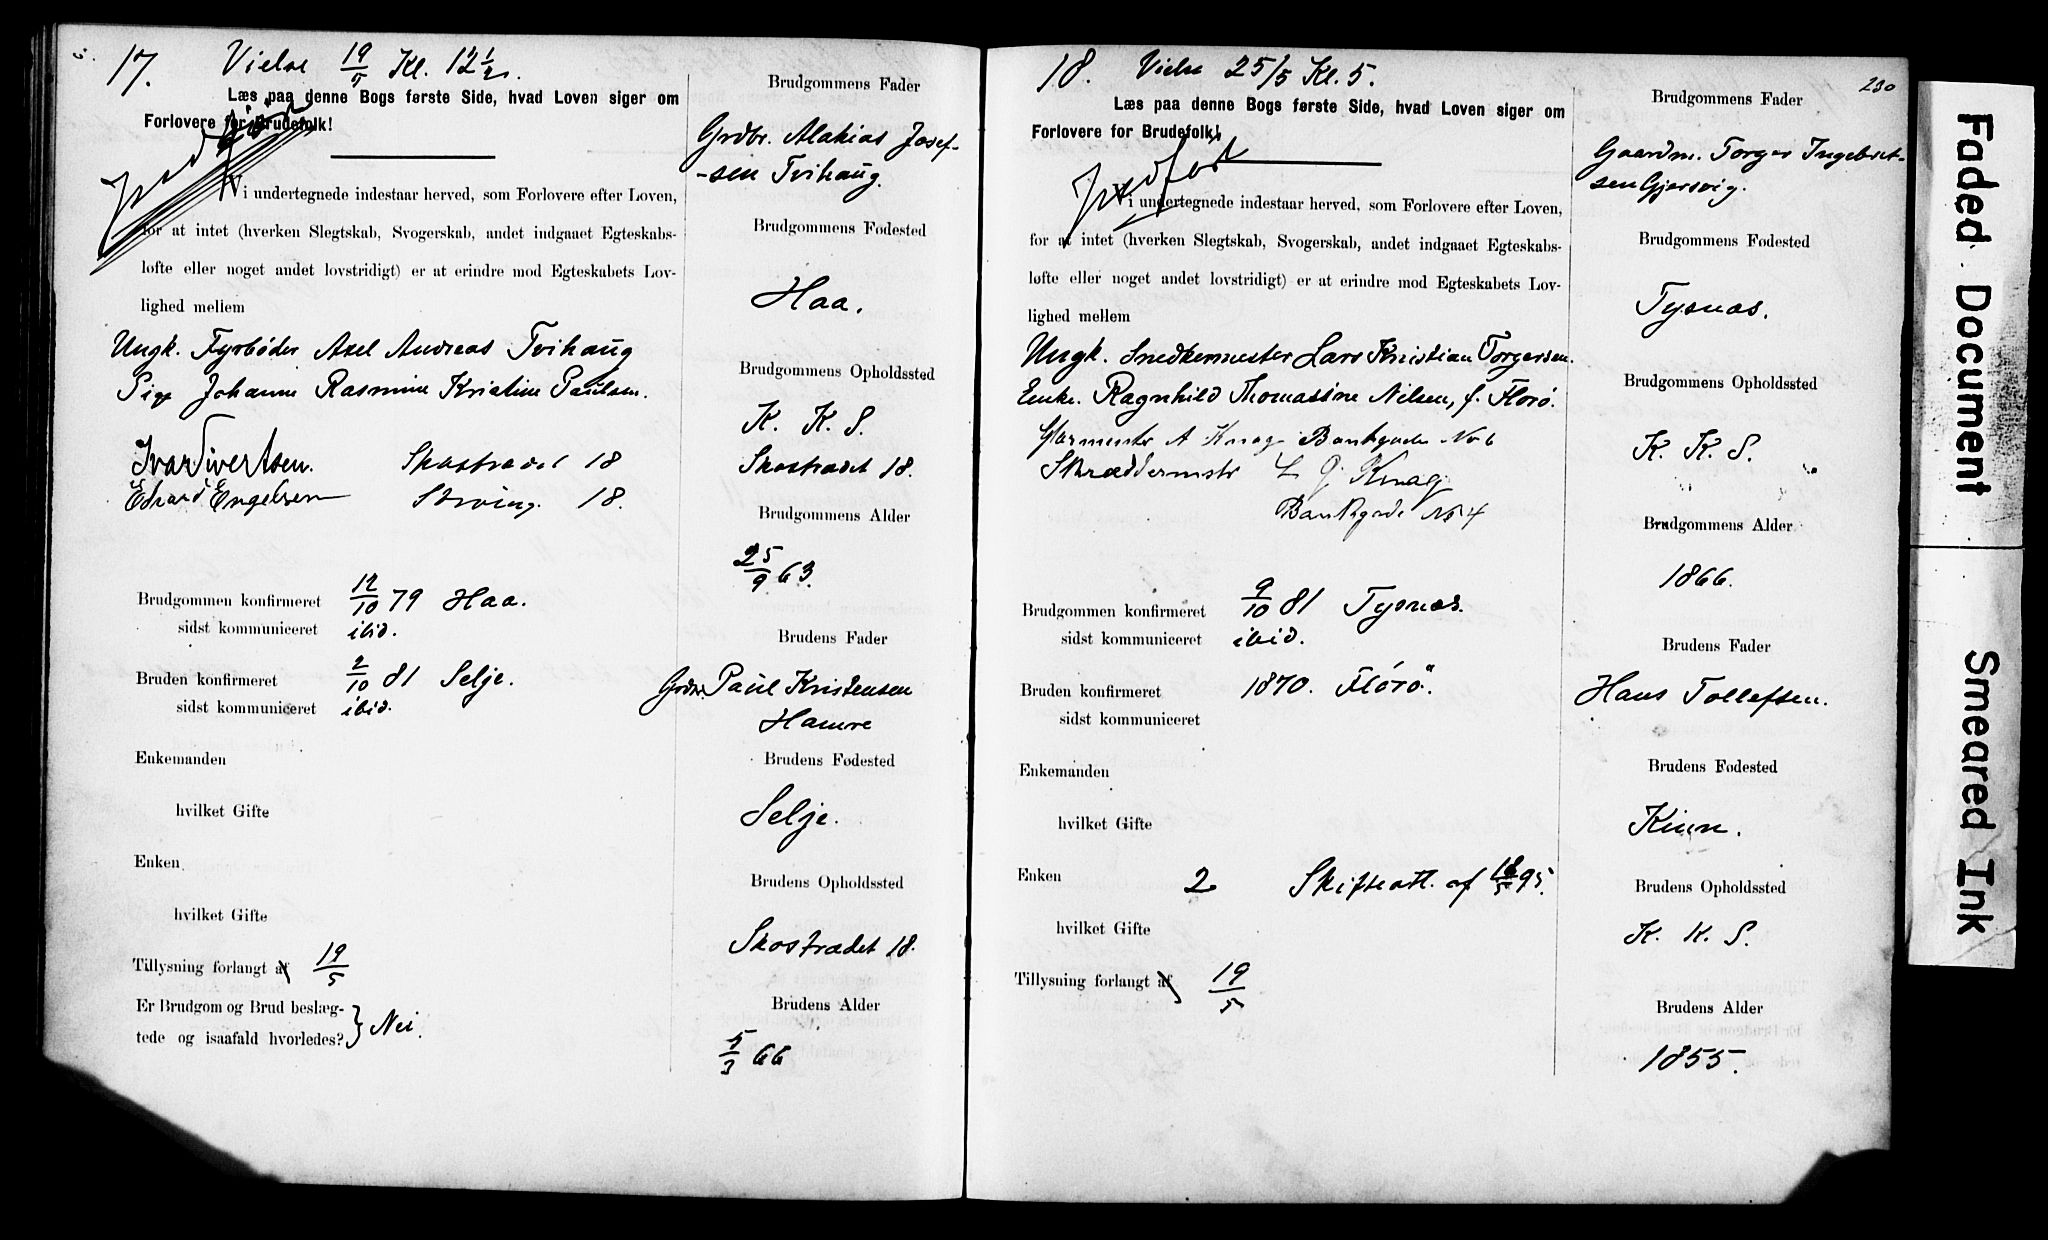 17. Vielse 19/5 Kl. 12 1/2.
Læs paa denne Bogs første Side, hvad Loven siger om
Forlovere for Brudefolk!
Indført
Vi undertegnede indestaar herved, som Forlovere efter Loven,
for at intet (hverken Slegtskab, Svogerskab, andet indgaaet Egteskabs-
løfte eller noget andet lovstridigt) er at erindre mod Egteskabets Lov-
lighed mellem
Ungk. Fyrbøder Axel Andreas Tvihaug
Pige Johanne Rasmine Kristine Paulsen.
Ivar Sivertsen. Skostrædet 18
Edvard Engelsen 18.
Brudgommen konfirmeret 12/10 79 Haa.
sidst kommuniceret ibid.
Bruden konfirmeret 2/10 81 Selje.
sidst kommuniceret ibid.
Enkemanden
hvilket Gifte
Enken
hvilket Gifte
Tillysning forlangt af 19/5
Er Brudgom og Brud beslæg-
tede og isaafald hvorledes? } Nei.
Brudgommens Fader
Grdbr. Malakias Josef-
-sen Tvihaug.
Brudgommens Fødested
Haa.
Brudgommens Opholdssted
K. K. S.
Skostrædet 18.
Brudgommens Alder
25/9 63.
Brudens Fader
Grdbr. Paul Kristensen
Hamre
Brudens Fødested
Selje.
Brudens Opholdssted
Skostrædet 18.
Brudens Alder
5/3 66
18. Vielse 25/5 Kl. 5.
230
Læs paa denne Bogs første Side, hvad Loven siger om
Forlovere for Brudefolk!
Indført
Vi undertegnede indestaar herved, som Forlovere efter Loven,
for at intet (hverken Slegtskab, Svogerskab, andet indgaaet Egteskabs-
løfte eller noget andet lovstridigt) er at erindre mod Egteskabets Lov-
lighed mellem
Ungk. Snedkermester Lars Kristian Torgersen.
Enke. Ragnhild Thomassine Nilsen, f. Florö.
Glarmester A Knag Bankgade No 6
Skræddermstr L J Knag
Bankgade No 4
Brudgommen konfirmeret 9/10 81 Tysnæs.
sidst kommuniceret ibid.
Bruden konfirmeret 1870. Florö.
sidst kommuniceret
Enkemanden
hvilket Gifte
Enken 2 Skifteatt. af 18/5 95.
hvilket Gifte
Tillysning forlangt af 19/5
Brudgommens Fader
Gaardm. Torger Ingebret-
sen Gjersvig.
Brudgommens Fødested
Tysnæs.
Brudgommens Opholdssted
K. K. S.
Brudgommens Alder
1866.
Brudens Fader
Hans Tollefsen.
Brudens Fødested
Kinn.
Brudens Opholdssted
K. K. S.
Brudens Alder
1855.
Faded Document
Smeared Ink